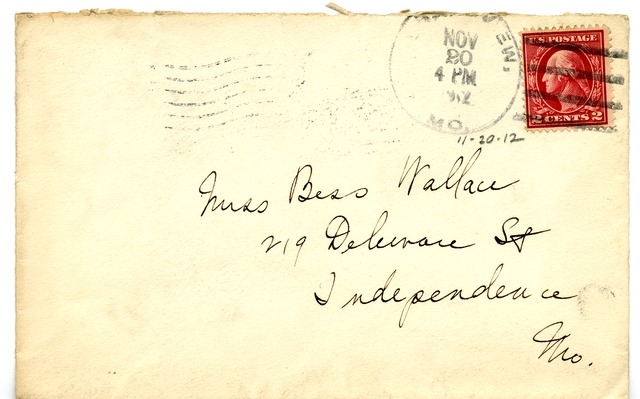 NOV
20
4 PM
12
MO.
U.S. POSTAGE
2 CENTS 2
11-20-12
Miss Bess Wallace
219 Deleware St
Independence
Mo.